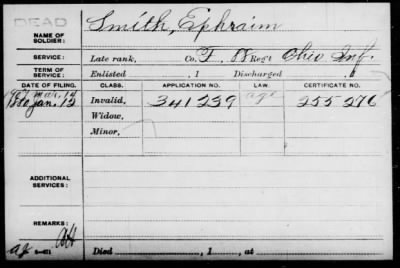 DEAD
NAME OF SOLDIER: Smith, Ephraim
SERVICE: Late rank, Co. F. 88 Reg't Ohio Inf.
TERM OF SERVICE: Enlisted , 1 Discharged , 1
DATE OF FILING. CLASS. APPLICATION NO. LAW. CERTIFICATE NO.
Mar. 14
1880 Jan. 12 Invalid, 341239 age 255276
Widow,
Minor,
ADDITIONAL SERVICES:
REMARKS:
Died , 1 , at